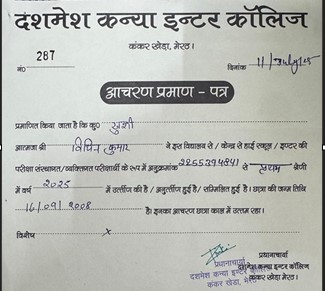 दशमेश कन्या इन्टर कॉलिज
कंकर खेड़ा, मेरठ।
नं० 287 दिनांक 11/July/25
आचरण प्रमाण - पत्र
प्रमाणित किया जाता है कि कु०
आत्मजा श्री विपिन कुमार ने इस विद्यालय से / केन्द्र से हाई स्कूल / इण्टर की
परीक्षा संस्थागत/व्यक्तिगत परीक्षार्थी के रूप में अनुक्रमांक 2255394841 से प्रथम श्रेणी
में वर्ष 2025 में उत्तीर्ण की है / अनुत्तीर्ण हुई है/ सम्मिलित हुई है। छात्रा की जन्म तिथि
16/09/2008 है। इनका आचरण छात्रा काल में उत्तम रहा।
विशेष x
प्रधानाचार्या
दशमेश कन्या इन्टर कॉलिज
कंकर खेड़ा, मेरठ
प्रधानाचार्या
दशमेश कन्या इण्टर
कंकर खेड़ा, मेरठ